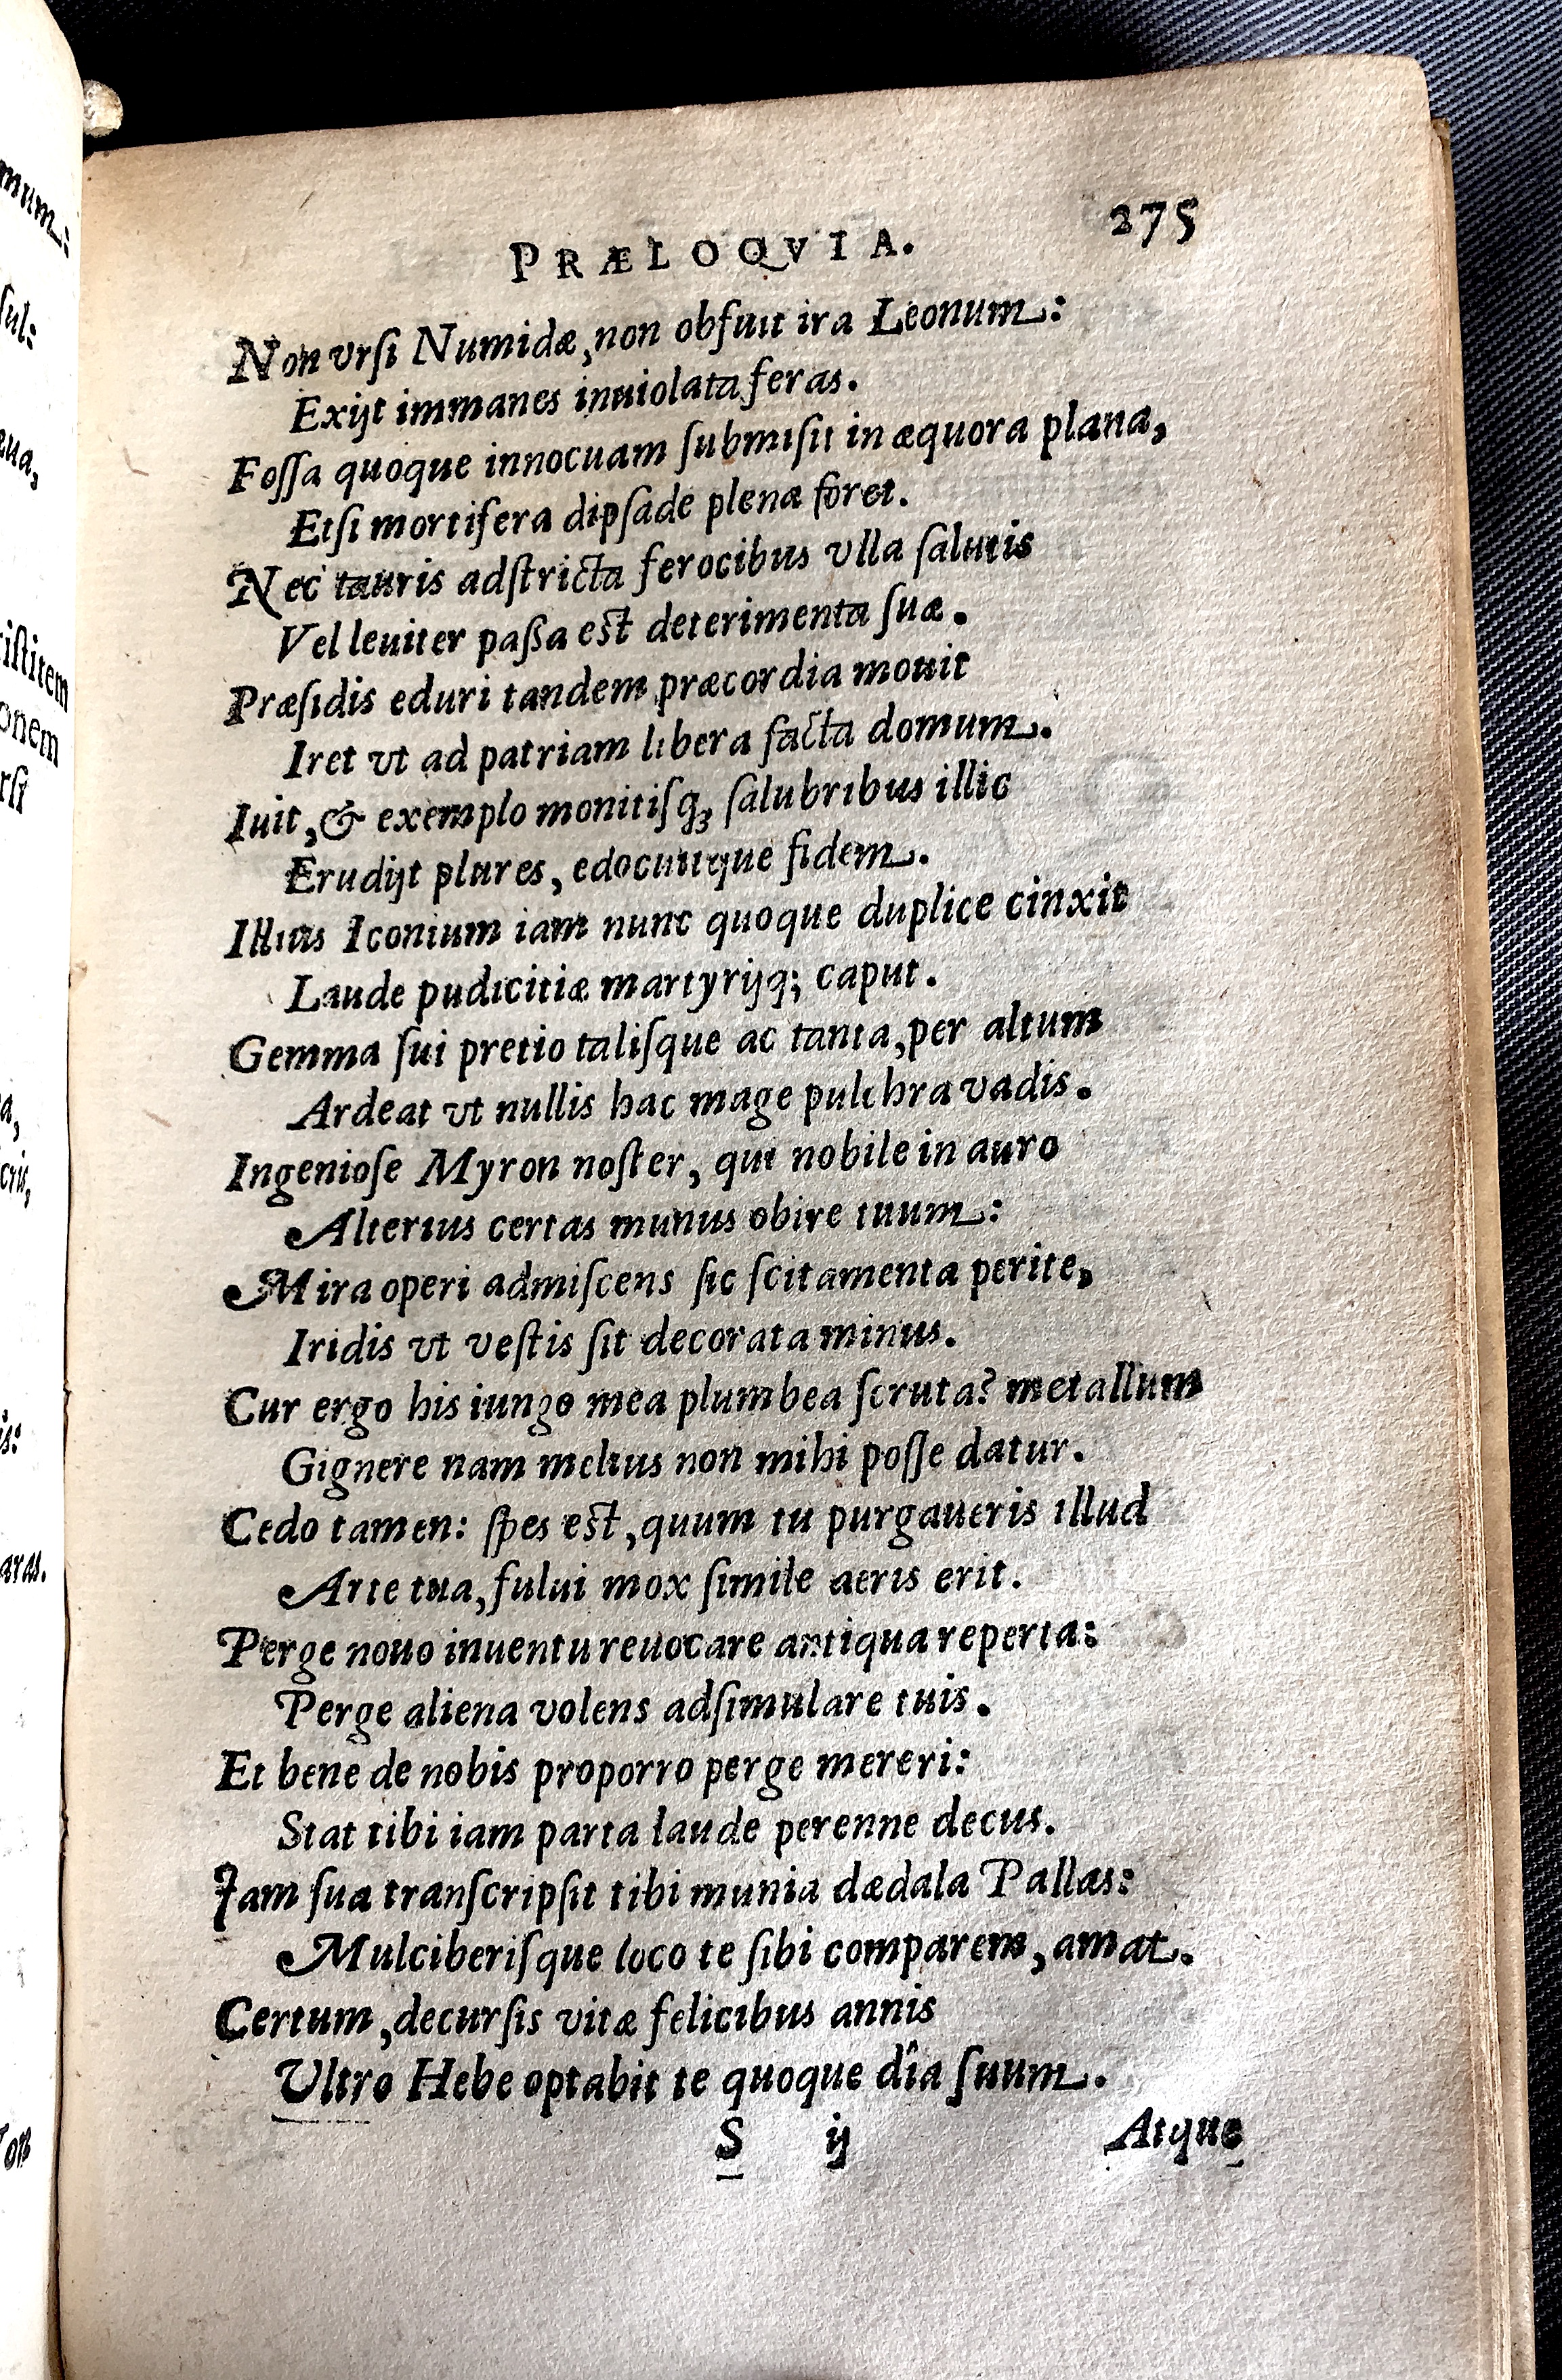 PRÆLOQVIA. 275
Non vrſi Numidæ, non obfuit ira Leonum:
Exijt immanes inuiolata feras.
Foſſa quoque innocuam ſubmiſit in æquora plana,
Etſi mortifera dipſade plena foret.
Nec tauris adſtricta ferocibus vlla ſalutis
Vel leuiter paßa est deterimenta ſuæ.
Præſidis eduri tandem præcordia mouit
Iret vt ad patriam libera facta domum.
Iuit, & exemplo monitiſq; ſalubribus illic
Erudijt plures, edocuitque fidem.
Illius Iconium iam nunc quoque duplice cinxit
Laude pudicitiæ martyrijq; caput.
Gemma ſui pretio taliſque ac tanta, per altum
Ardeat vt nullis hac mage pulchra vadis.
Ingenioſe Myron noſter, qui nobile in auro
Alterius certas munus obire tuum:
Mira operi admiſcens ſic ſcitamenta perite,
Iridis vt veſtis ſit decorata minus.
Cur ergo his iungo mea plumbea ſcruta? metallum
Gignere nam melius non mihi poſſe datur.
Cedo tamen: ſpes est, quum tu purgaueris illud
Arte tua, fului mox ſimile aeris erit.
Perge nouo inuentu reuocare antiqua reperta:
Perge aliena volens adſimulare tuis.
Et bene de nobis proporro perge mereri:
Stat tibi iam parta laude perenne decus.
Iam ſua tranſcripſit tibi munia dædala Pallas:
Mulciberiſque loco te ſibi comparem, amat.
Certum, decurſis vitæ felicibus annis
Vltro Hebe optabit te quoque dîa ſuum.
S ij Atque